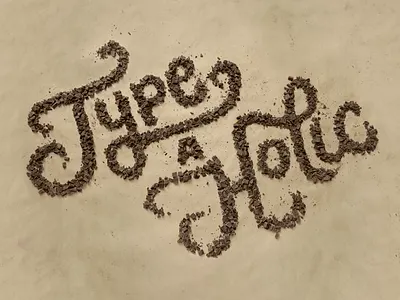 Type
A
Holic